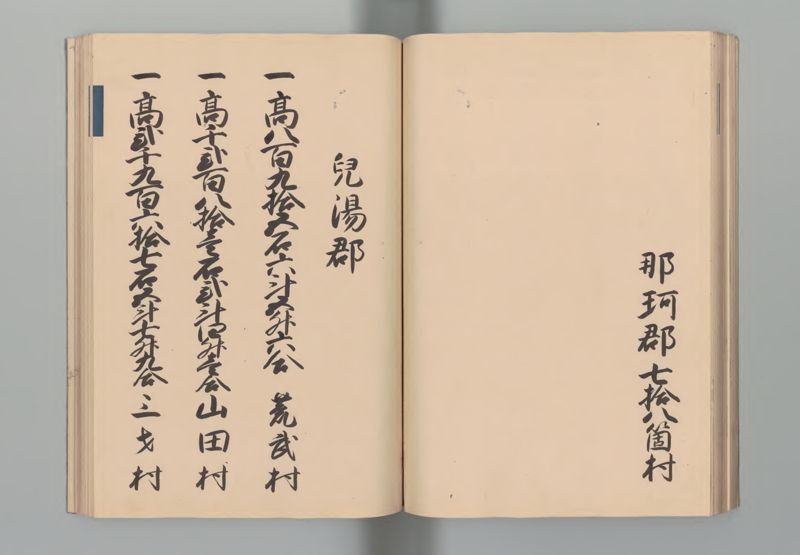 那珂郡七拾八箇村
兒湯郡
一高八百九拾五石六斗五升六合 荒武村
一高千弐百八拾壱石弐斗四升壱合 山田村
一高弐千九百六拾七石五斗七升九合 三戈村